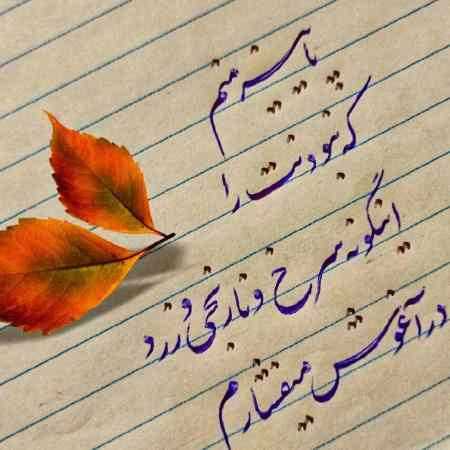 پاییز منم
که نبودنت را
اینگونه سرخ و نارنجی و زرد
در آغوش میفشارم